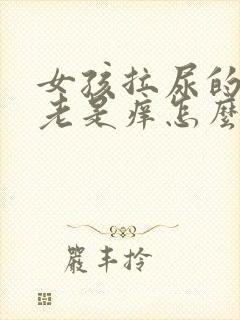 女孩拉尿的
老是痒怎麼
嚴丰拎